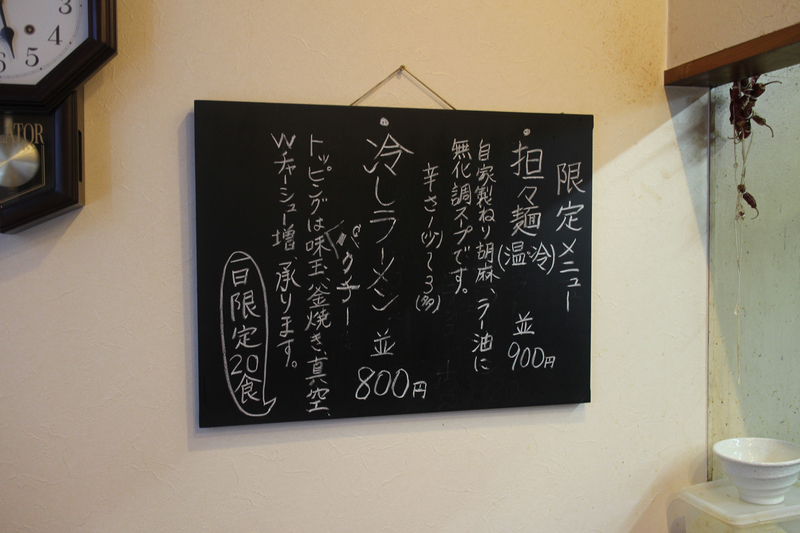 限定メニュー
担々麺(温・冷) 並 900円
自家製ねり胡麻、ラー油に
無化調スープです。
辛さ1(少)〜3(多)
冷しラーメン 並 800円
パクチー
トッピングは味玉、釜焼き、真空、
W・チャーシュー増、承ります。
一日限定20食
3
4
5
6